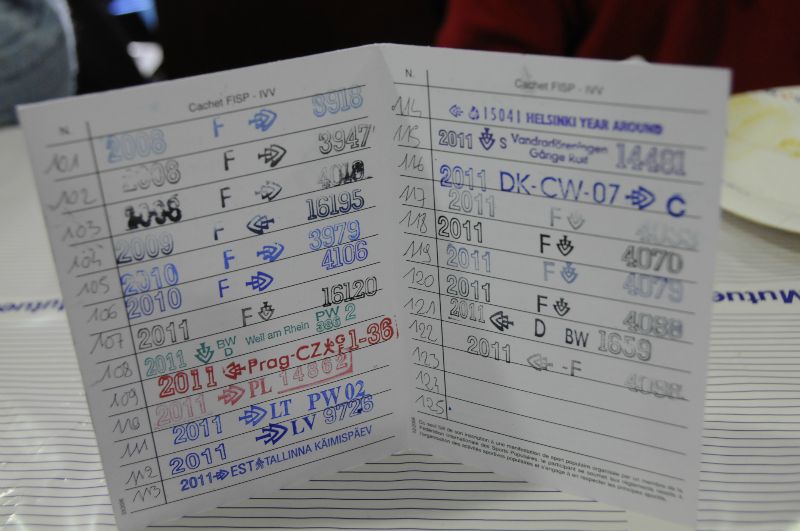 N. Cachet FISP - IVV
101 2008 F 3918
102 2008 F 3947
103 2008 F 4018
104 2009 F 16195
105 2010 F 3979
106 2010 F 4106
107 2011 F 16120
108 2011 BW D Weil am Rhein PW 2 385
109 2011 Prag-CZ 1-36
110 2011 PL 14862
111 2011 LT PW02
112 2011 LV 9726
113 2011 EST TALLINNA KÄIMISPÄEV
N. Cachet FISP - IVV
114 15041 HELSINKI YEAR AROUND
115 2011 S Vandrarföreningen Gånge Rulf 14461
116 2011 DK-CW-07 C
117 2011 F
118 2011 F 4070
119 2011 F 4079
120 2011 F 4088
121 2011 D BW 1659
122 2011 -F 4098
123
124
125
Du seul fait de son inscription à une manifestation de sport populaire organisée par un membre de la
Fédération Internationale des Sports Populaires, le participant se soumet aux règlements requis à
l'organisation des activités sportives populaires et s'engage à en respecter les principes sportifs.
Mutue